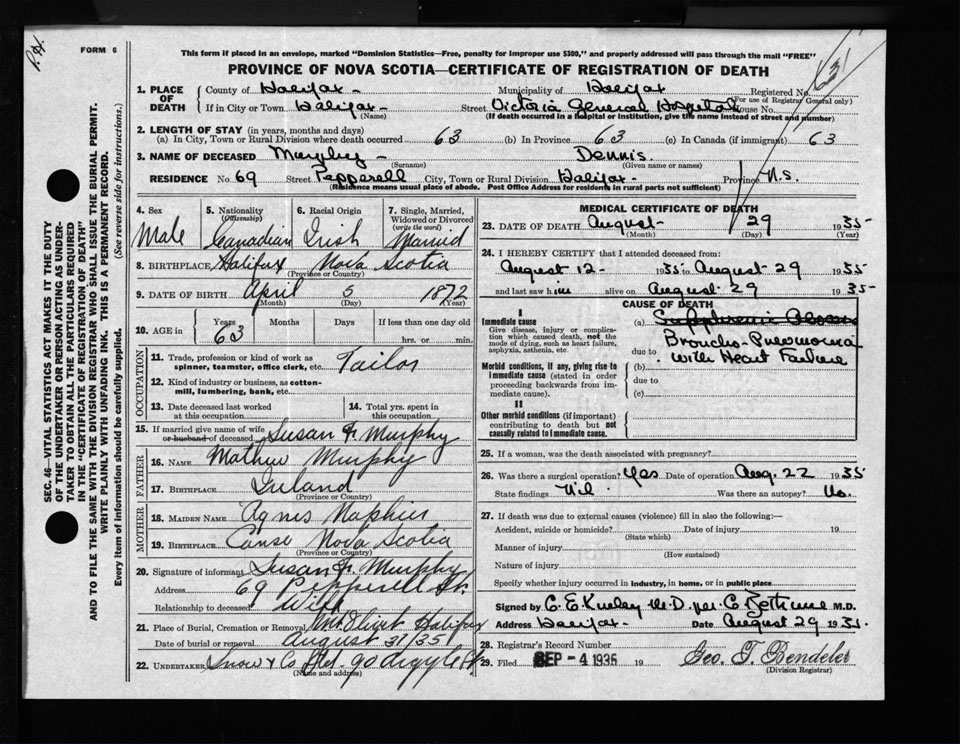 FORM 6
This form if placed in an envelope, marked "Dominion Statistics—Free, penalty for improper use $300," and properly addressed will pass through the mail "FREE"
PROVINCE OF NOVA SCOTIA—CERTIFICATE OF REGISTRATION OF DEATH
1. PLACE OF DEATH County of Halifax - Municipality of Halifax Registered No.
(For use of Registrar General only)
If in City or Town Halifax - Street Victoria General Hospital House No.
(Name) (If death occurred in a hospital or institution, give the name instead of street and number)
2. LENGTH OF STAY (in years, months and days)
(a) In City, Town or Rural Division where death occurred 63 (b) In Province 63 (c) In Canada (if immigrant) 63
3. NAME OF DECEASED Murphy - Dennis.
(Surname) (Given name or names)
RESIDENCE No 69 Street Pepperell City, Town or Rural Division Halifax - Province N.S.
(Residence means usual place of abode. Post Office Address for residents in rural parts not sufficient)
SEC. 46—VITAL STATISTICS ACT MAKES IT THE DUTY
OF THE UNDERTAKER OR PERSON ACTING AS UNDER-
TAKER TO OBTAIN ALL THE PARTICULARS REQUIRED
IN THE "CERTIFICATE OF REGISTRATION OF DEATH"
AND TO FILE THE SAME WITH THE DIVISION REGISTRAR WHO SHALL ISSUE THE BURIAL PERMIT.
WRITE PLAINLY WITH UNFADING INK. THIS IS A PERMANENT RECORD.
Every item of information should be carefully supplied. (See reverse side for instructions.)
4. Sex Male
5. Nationality (Citizenship) Canadian
6. Racial Origin Irish
7. Single, Married, Widowed or Divorced (write the word) Married
8. BIRTHPLACE Halifax Nova Scotia
(Province or Country)
9. DATE OF BIRTH April 5 1872
(Month) (Day) (Year)
10. AGE in Years Months Days If less than one day old
63 hrs. or min.
OCCUPATION
11. Trade, profession or kind of work as spinner, teamster, office clerk, etc. Tailor
12. Kind of industry or business, as cotton-mill, lumbering, bank, etc.
13. Date deceased last worked at this occupation
14. Total yrs. spent in this occupation
15. If married give name of wife or husband of deceased Susan F. Murphy
FATHER
16. NAME Mathew Murphy
17. BIRTHPLACE Ireland
(Province or Country)
MOTHER
18. MAIDEN NAME Agnes
19. BIRTHPLACE Canso Nova Scotia
(Province or Country)
20. Signature of informant Susan F. Murphy
Address 69 Pepperell St.
Relationship to deceased Wife
21. Place of Burial, Cremation or Removal Mt. Olivet Halifax
Date of burial or removal August 31/35
22. UNDERTAKER Snow & Co 90 Argyle St
(Name and address)
MEDICAL CERTIFICATE OF DEATH
23. DATE OF DEATH August - 29 1935
(Month) (Day) (Year)
24. I HEREBY CERTIFY that I attended deceased from:
August 12 - 1935 to August 29 1935
and last saw him alive on August 29 1935
CAUSE OF DEATH
I
Immediate cause
Give disease, injury or complication which caused death, not the mode of dying, such as heart failure, asphyxia, asthenia, etc.
(a) Subphrenic Abscess
Broncho-Pneumonia
due to with Heart Failure
Morbid conditions, if any, giving rise to immediate cause (stated in order proceeding backwards from immediate cause).
(b)
due to
(c)
II
Other morbid conditions (if important) contributing to death but not causally related to immediate cause.
25. If a woman, was the death associated with pregnancy?
26. Was there a surgical operation? Yes Date of operation Aug. 22 1935
State findings Nil Was there an autopsy? No.
27. If death was due to external causes (violence) fill in also the following:—
Accident, suicide or homicide? Date of injury 19
(State which)
Manner of injury
(How sustained)
Nature of injury
Specify whether injury occurred in industry, in home, or in public place
Signed by C. E. Kinley M.D. per C. Bethune M.D.
Address Halifax - Date August 29 1935.
28. Registrar's Record Number
29. Filed SEP - 4 1935 19 Geo. T. Bendeler
(Division Registrar)